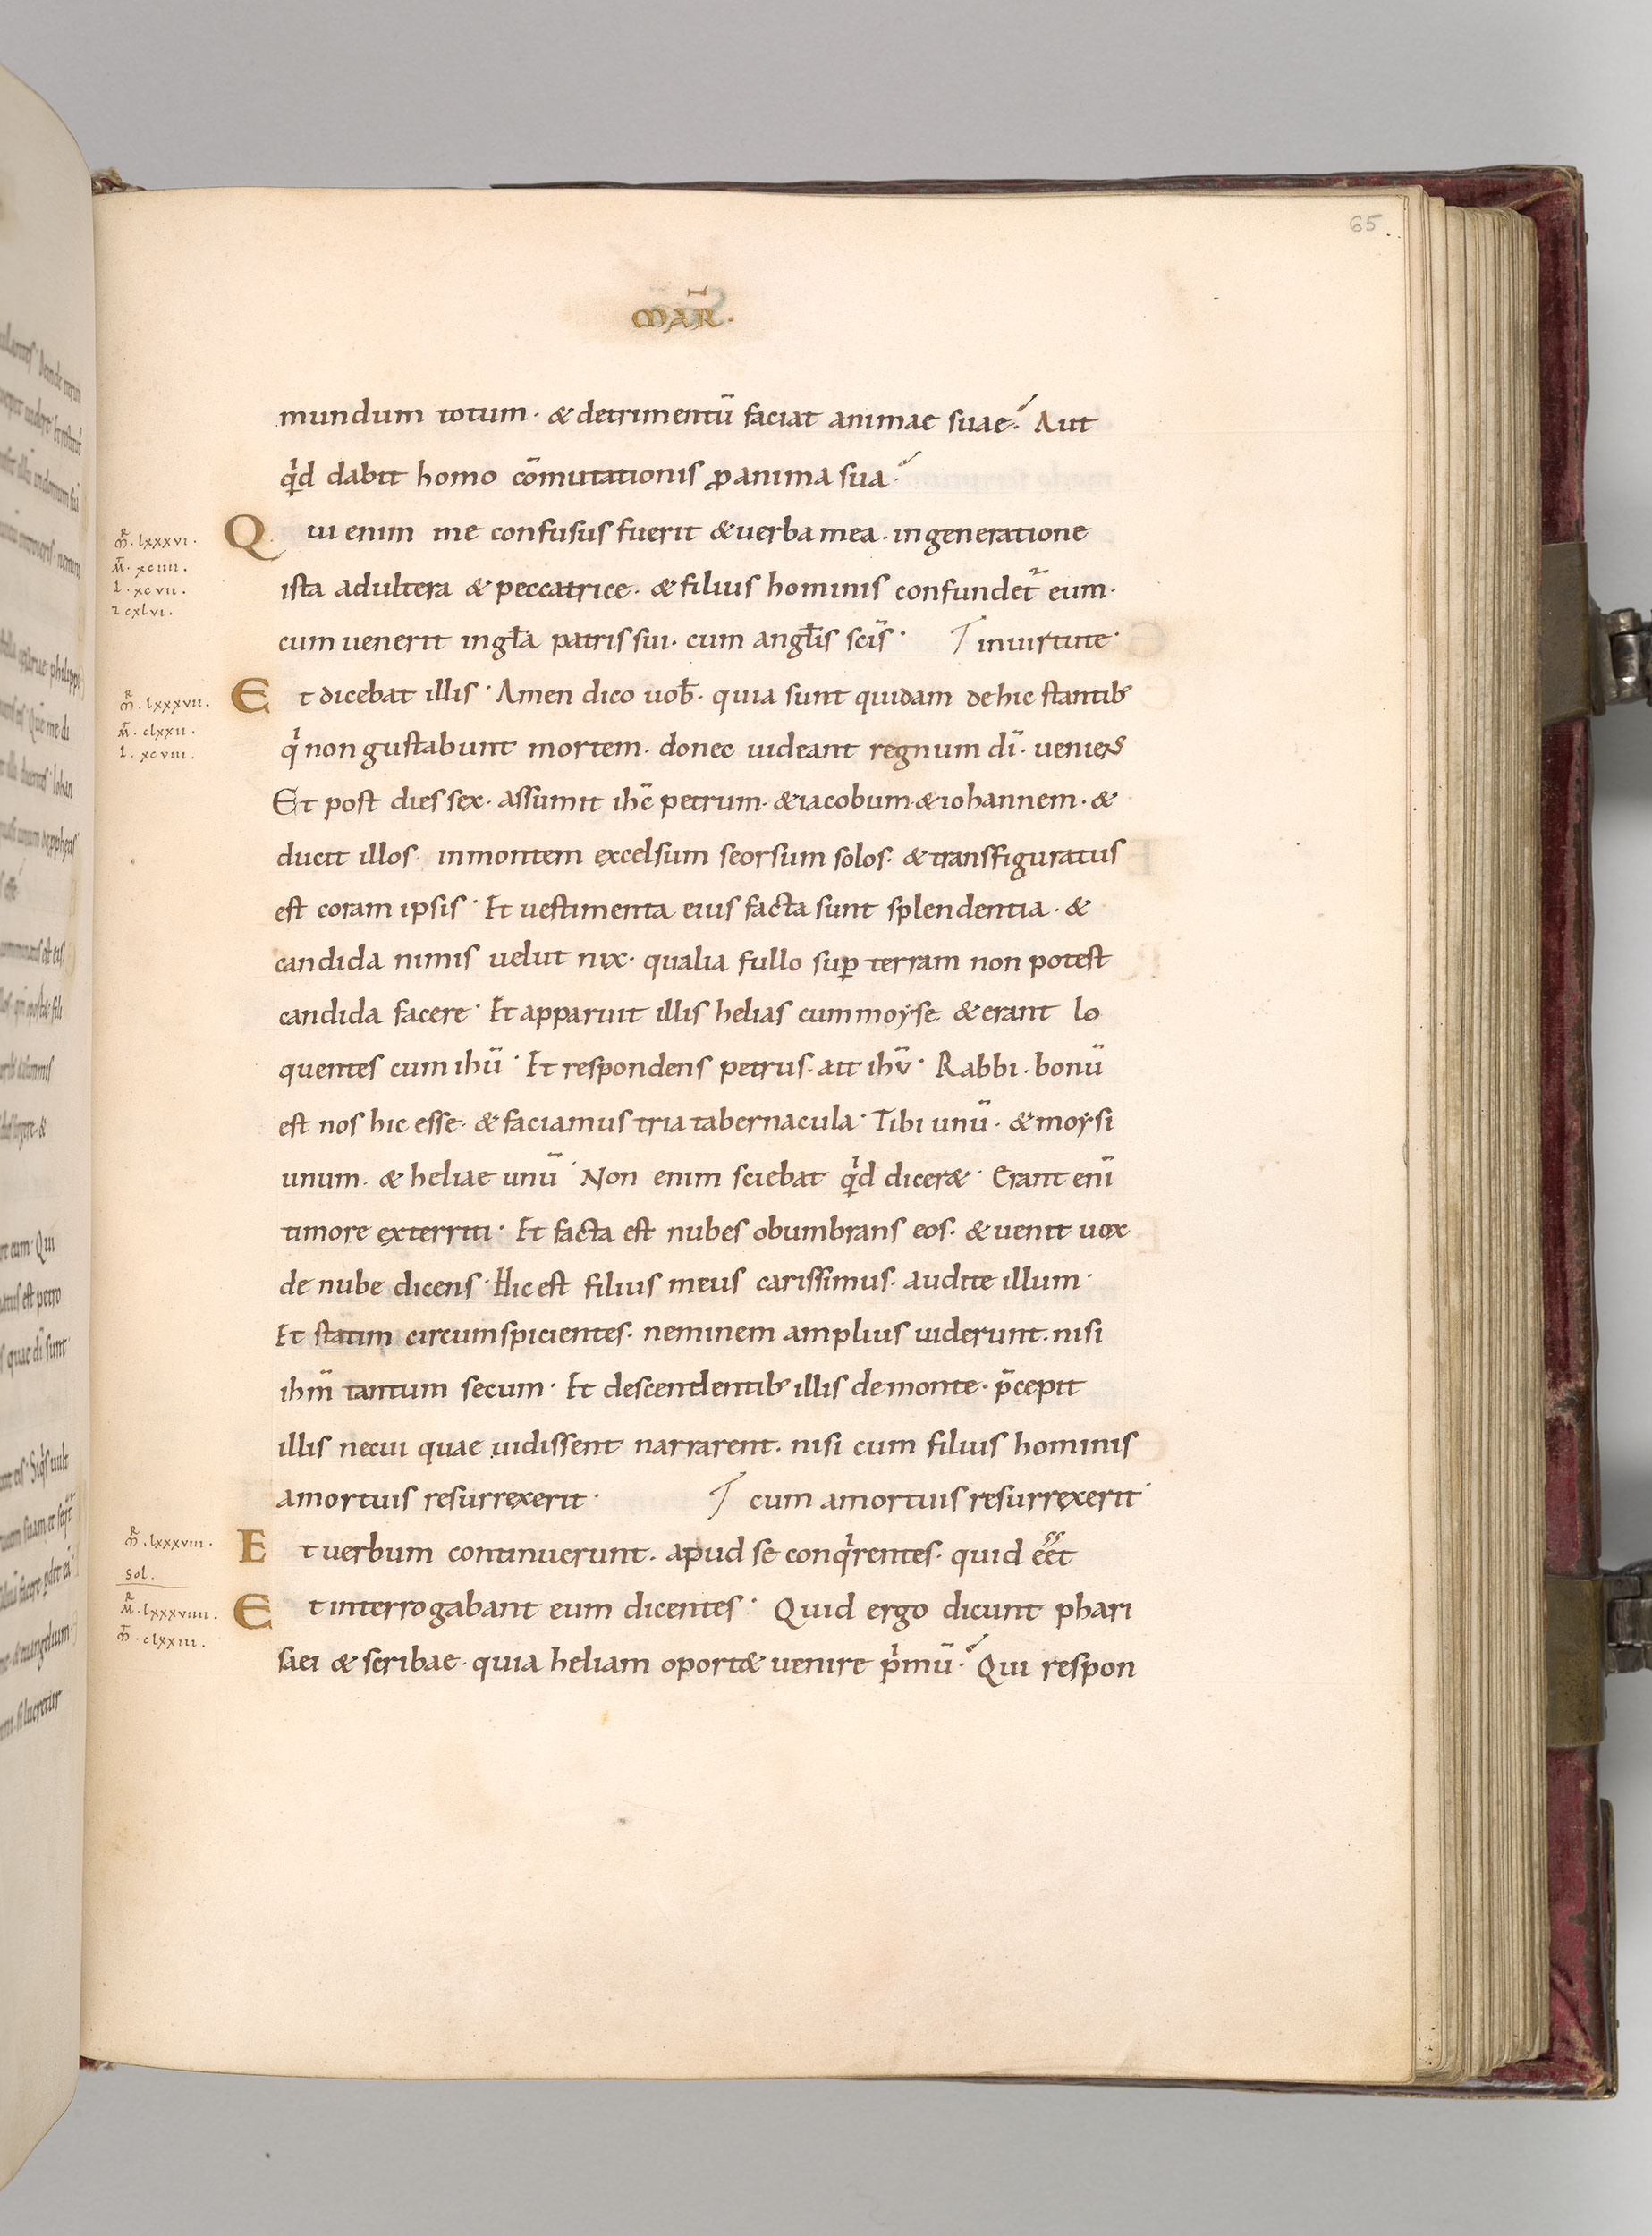 65
MAR̄.
mundum totum· & detrimentū faciat animae suae? Aut
qͥd dabit homo cōmutationis ꝓ anima sua?
m̅R. lxxxvi.
M̅. xciiii.
l. xcvii.
2 cxlvi.
Qui enim me confusus fuerit & uerba mea· in generatione
ista adultera & peccatrice· & filius hominis confundet᷑ eum·
cum uenerit in gl̄a patris sui· cum angl̄is scīs· in uirtute·
m̅R. lxxxvii.
M̅. clxxii.
l. xcviii.
Et dicebat illis· Amen dico uob̄· quia sunt quidam de hic stantib;
qͥ non gustabunt mortem· donec uideant regnum dī·ueniens
Et post dies sex· assumit ihc̄ petrum· & iacobum· & iohannem· &
ducit illos in montem excelsum seorsum solos· & transfiguratus
est coram ipsis· Et uestimenta eius facta sunt splendentia· &
candida nimis uelut nix· qualia fullo suꝑ terram non potest
candida facere· Et apparuit illis helias cum moyse & erant lo
quentes cum ihū· Et respondens petrus· ait ihū· Rabbi· bonū
est nos hic esse· & faciamus tria tabernacula· Tibi unū· & moysi
unum· & heliae unū· Non enim sciebat qͥd dicer&· Erant enī
timore exterriti· Et facta est nubes obumbrans eos· & uenit uox
de nube dicens· Hic est filius meus carissimus· audite illum·
Et statim circumspicientes· neminem amplius uiderunt· nisi
ihm̄ tantum secum· Et descendentib; illis de monte· p̄cepit
illis necui quae uidissent narrarent· nisi cum filius hominis
amortuis resurrexerit· cum amortuis resurrexerit·
m̅R. lxxxviii.
sol.
Et uerbum continuerunt· apud se conqͥrentes· quid eēt
M̅R. lxxxviiii.
m̅. clxxiii.
Et interrogabant eum dicentes· Quid ergo dicunt phari
saei & scribae· quia heliam oport& uenire pͥmū? Qui respon